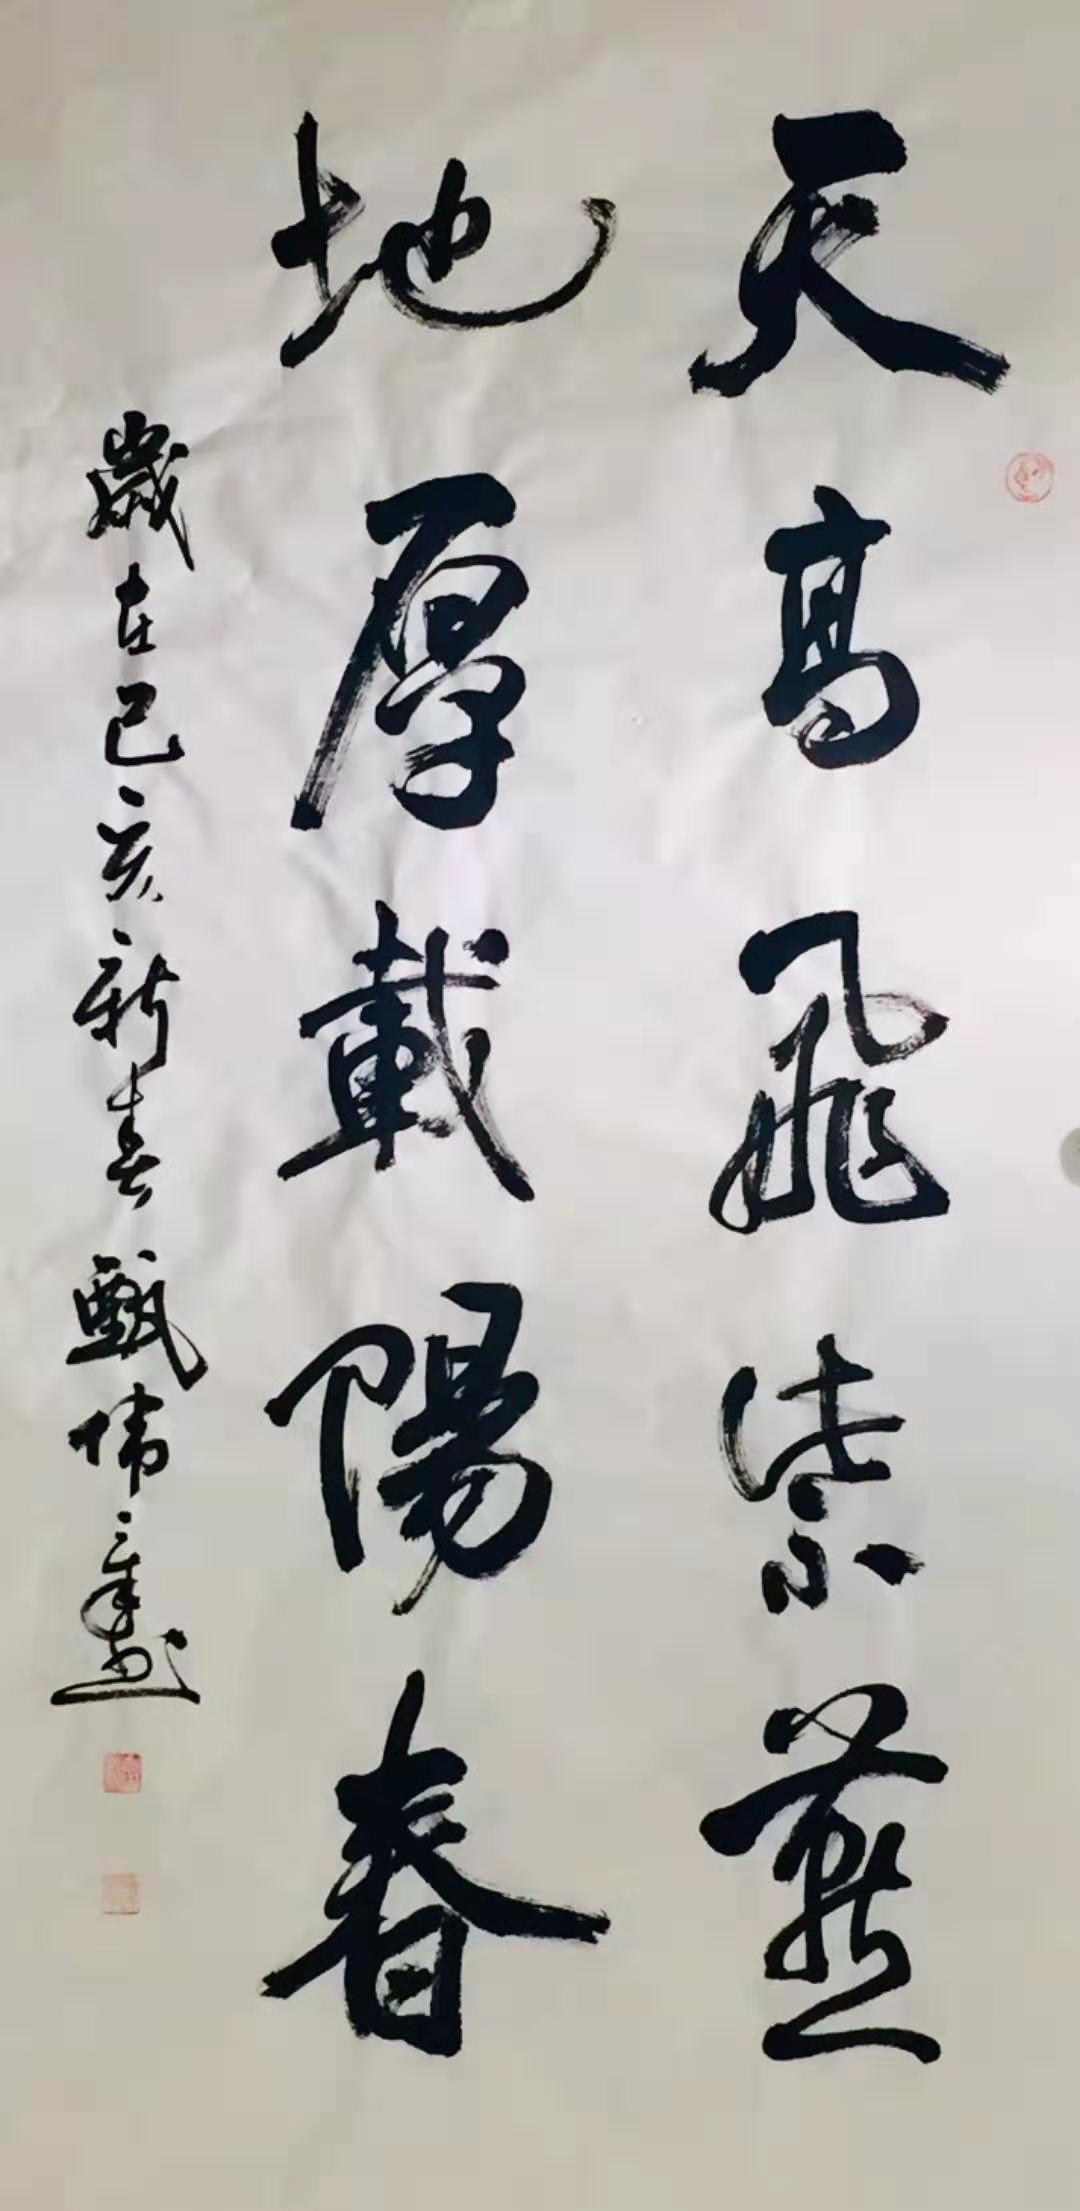 天高飛紫燕
地厚載陽春
歲在己亥新春甄偉